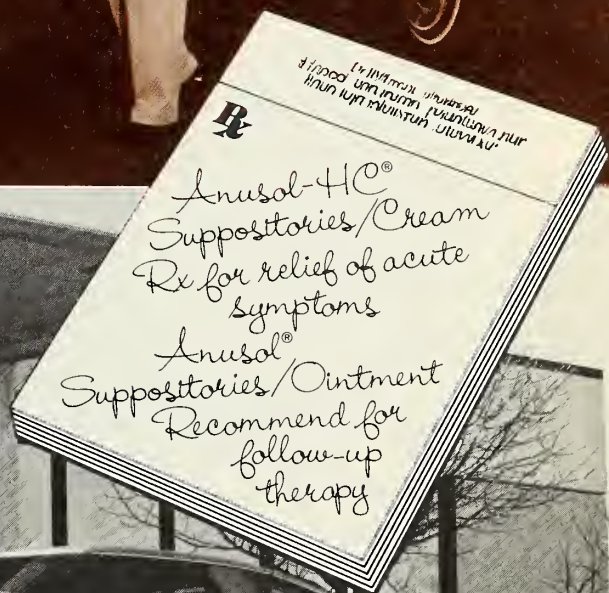 Rx
Anusol-HC®
Suppositories/Cream
Rx for relief of acute
symptoms
Anusol®
Suppositories/Ointment
Recommend for
follow-up
therapy